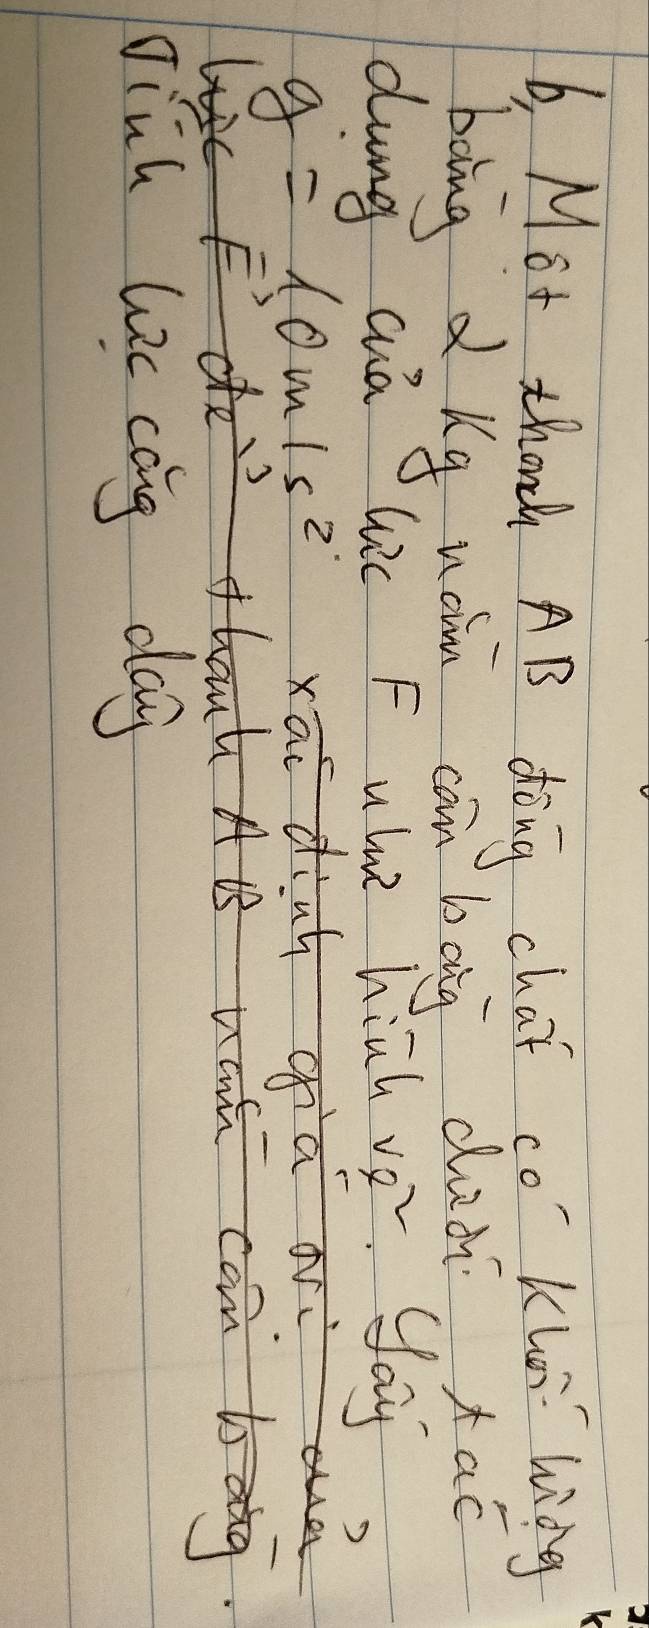 b, Một thanh AB đồng chất có khối lượng
bằng 2 kg nằm cân bằng dưới tác
dụng của lực F như hình vẽ. Lấy
g = 10 m/s². xác định giá trị của
lực F để thanh AB nằm cân bằng.
Tính lực căng dây